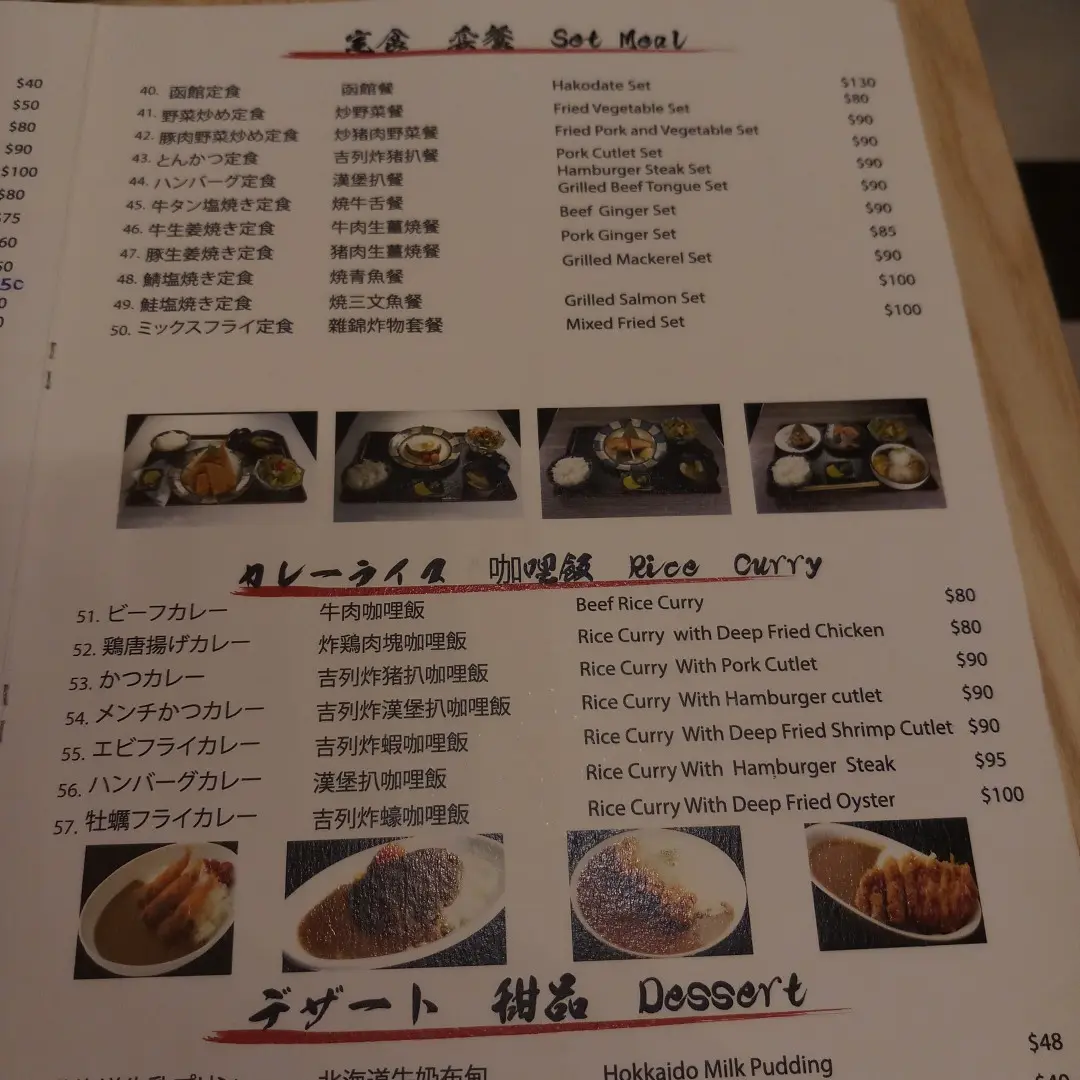 定食 套餐 Set Meal
40. 函館定食 函館餐 Hakodate Set $130
41. 野菜炒め定食 炒野菜餐 Fried Vegetable Set $80
42. 豚肉野菜炒め定食 炒猪肉野菜餐 Fried Pork and Vegetable Set $90
43. とんかつ定食 吉列炸猪扒餐 Pork Cutlet Set $90
44. ハンバーグ定食 漢堡扒餐 Hamburger Steak Set $90
45. 牛タン塩焼き定食 焼牛舌餐 Grilled Beef Tongue Set $90
46. 牛生姜焼き定食 牛肉生薑燒餐 Beef Ginger Set $90
47. 豚生姜焼き定食 猪肉生薑燒餐 Pork Ginger Set $85
48. 鯖塩焼き定食 焼青魚餐 Grilled Mackerel Set $90
49. 鮭塩焼き定食 焼三文魚餐 Grilled Salmon Set $100
50. ミックスフライ定食 雜錦炸物套餐 Mixed Fried Set $100
カレーライス 咖哩飯 Rice Curry
51. ビーフカレー 牛肉咖哩飯 Beef Rice Curry $80
52. 鶏唐揚げカレー 炸鶏肉塊咖哩飯 Rice Curry with Deep Fried Chicken $80
53. かつカレー 吉列炸猪扒咖哩飯 Rice Curry With Pork Cutlet $90
54. メンチかつカレー 吉列炸漢堡扒咖哩飯 Rice Curry With Hamburger cutlet $90
55. エビフライカレー 吉列炸蝦咖哩飯 Rice Curry With Deep Fried Shrimp Cutlet $90
56. ハンバーグカレー 漢堡扒咖哩飯 Rice Curry With Hamburger Steak $95
57. 牡蠣フライカレー 吉列炸蠔咖哩飯 Rice Curry With Deep Fried Oyster $100
デザート 甜品 Dessert
北海道牛奶布甸 Hokkaido Milk Pudding $48
$40
$50
$80
$90
$100
$80